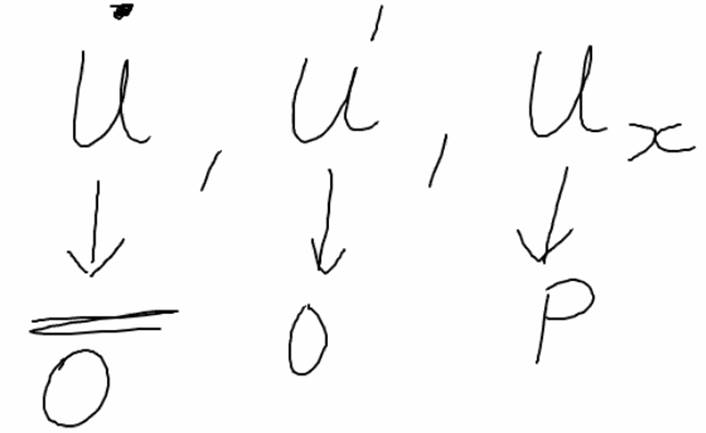 u̇ , u′ , uₓ
↓ ↓ ↓
O O P